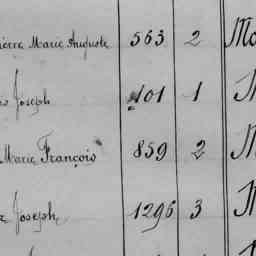 Marie Auguste 563 2
Joseph 101 1
Marie François 859 2
Joseph 1296 3